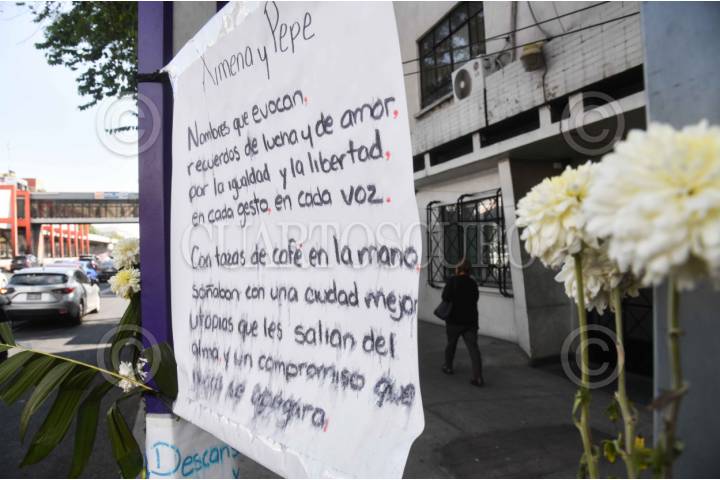 Ximena y Pepe
Nombres que evocan,
recuerdos de lucha y de amor,
por la igualdad y la libertad,
en cada gesto, en cada voz.
Con tazas de café en la mano,
soñaban con una ciudad mejor
utopías que les salían del
alma, y un compromiso que
nunca se apagará.
Descans
y
CUARTOSCURO